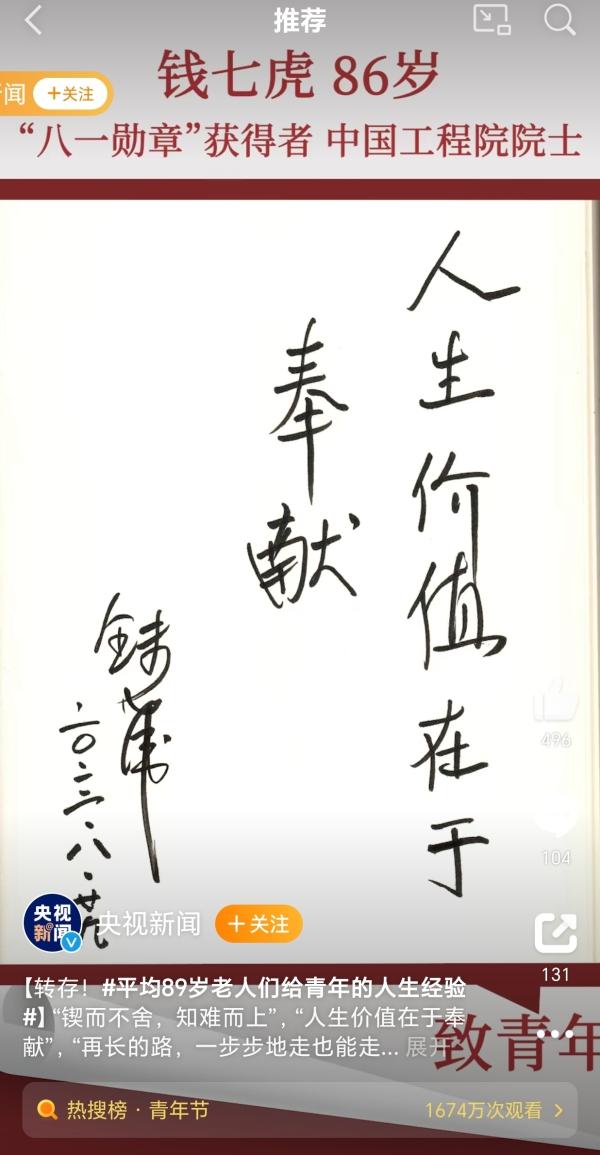 推荐
钱七虎 86岁
闻 +关注
“八一勋章”获得者 中国工程院院士
人生价值在于
奉献
钱七虎
二〇二三.八.廿九
496
104
131
央视新闻
央视新闻 +关注
【转存！#平均89岁老人们给青年的人生经验
#】“锲而不舍，知难而上”，“人生价值在于奉
献”，“再长的路，一步步地走也能走... 展开
致青年
热搜榜 · 青年节 1674万次观看